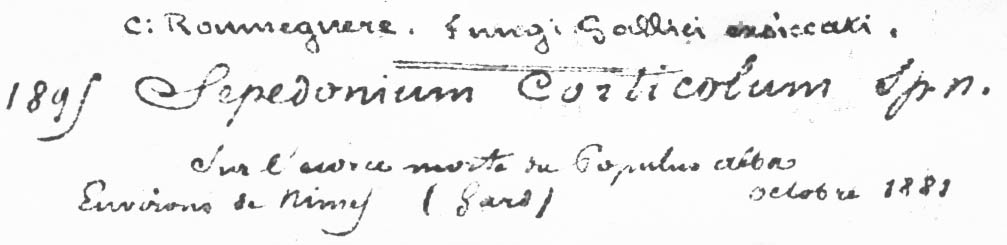 C: Roumeguere. Fungi Gallici exsiccati.
1895 Sepedonium Corticolum Sp. n.
Sur l'ecorce morte du Populus alba
Environs de Nimes (Gard) octobre 1881